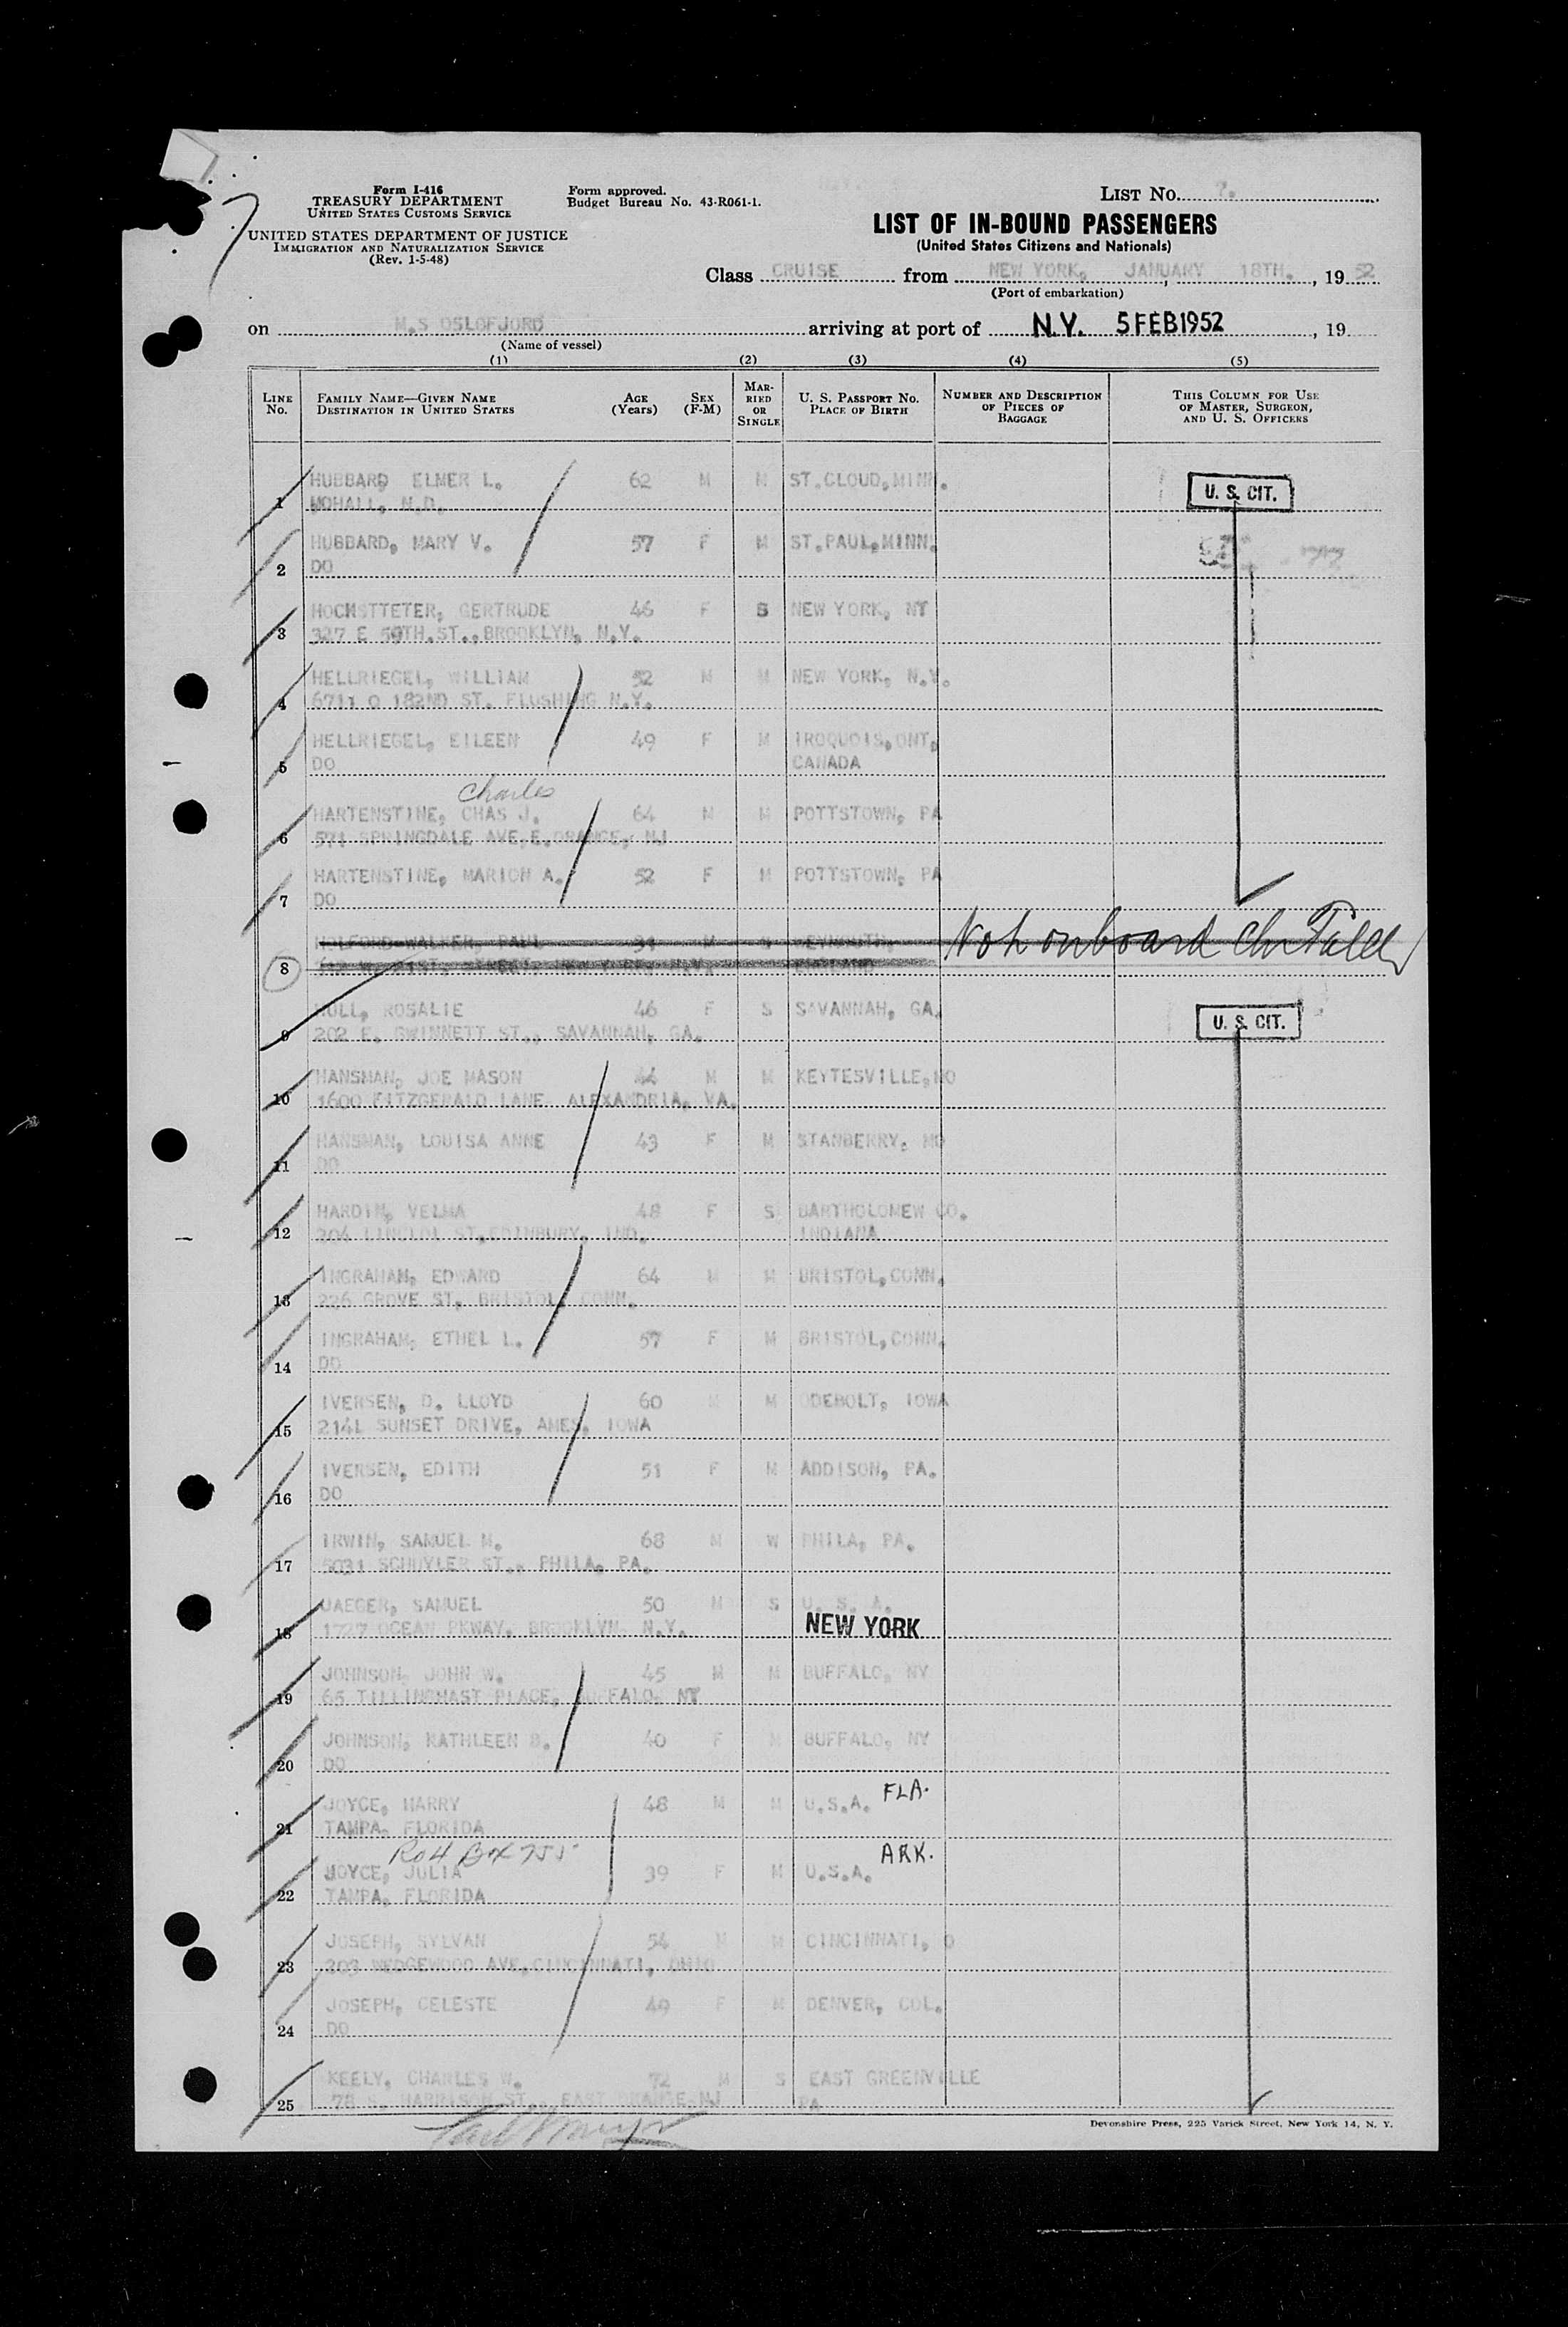 Form I-416
TREASURY DEPARTMENT
UNITED STATES CUSTOMS SERVICE
UNITED STATES DEPARTMENT OF JUSTICE
IMMIGRATION AND NATURALIZATION SERVICE
(Rev. 1-5-48)
Form approved.
Budget Bureau No. 43-R061-1.
LIST No. 7.
LIST OF IN-BOUND PASSENGERS
(United States Citizens and Nationals)
Class CRUISE from NEW YORK, JANUARY 18TH. , 19 52
(Port of embarkation)
on M.S OSLOFJORD arriving at port of N.Y. 5 FEB 1952 , 19
(Name of vessel)
(1) (2) (3) (4) (5)
LINE No. FAMILY NAME—GIVEN NAME DESTINATION IN UNITED STATES AGE (Years) SEX (F-M) MARRIED OR SINGLE U. S. PASSPORT NO. PLACE OF BIRTH NUMBER AND DESCRIPTION OF PIECES OF BAGGAGE THIS COLUMN FOR USE OF MASTER, SURGEON, AND U. S. OFFICERS
HUBBARD, ELMER L. 62 M M ST.CLOUD,MINN. U. S. CIT.
1 MOHALL, N.D.
HUBBARD, MARY V. 57 F M ST.PAUL,MINN.
2 DO
HOCHSTTETER, GERTRUDE 46 F S NEW YORK, NY
3 327 E 59TH.ST.,BROOKLYN, N.Y.
HELLRIEGEL, WILLIAM 52 M M NEW YORK, N.Y.
4 6711 O 182ND ST. FLUSHING N.Y.
HELLRIEGEL, EILEEN 49 F M IROQUOIS,ONT,
5 DO CANADA
Charles
HARTENSTINE, CHAS J. 64 M M POTTSTOWN, PA
6 571 SPRINGDALE AVE,E.ORANGE, NJ
HARTENSTINE, MARION A. 52 F M POTTSTOWN, PA
7 DO
HOLFORD-WALKER, PAUL M Not onboard
8 ENGLAND
HULL, ROSALIE 46 F S SAVANNAH, GA. U. S. CIT.
9 202 E. GWINNETT ST., SAVANNAH, GA.
HANSMAN, JOE MASON 44 M M KEYTESVILLE,MO
10 1600 FITZGERALD LANE ALEXANDRIA, VA.
HANSMAN, LOUISA ANNE 43 F M STANBERRY, MO
11 DO
HARDIN, VELMA 48 F S BARTHOLOMEW CO.
12 204 LINCLOL ST,EDINBURY, IND. INDIANA
INGRAHAM, EDWARD 64 M M BRISTOL,CONN.
13 226 GROVE ST, BRISTOL, CONN.
INGRAHAM, ETHEL L. 57 F M BRISTOL,CONN.
14 DO
IVERSEN, D. LLOYD 60 M M ODEBOLT, IOWA
15 214L SUNSET DRIVE, AMES, IOWA
IVERSEN, EDITH 51 F M ADDISON, PA.
16 DO
IRWIN, SAMUEL M. 68 M W PHILA, PA.
17 5031 SCHUYLER ST., PHILA, PA.
JAEGER, SAMUEL 50 M S U. S. A.
18 1727 OCEAN PKWAY, BROOKLYN N.Y. NEW YORK
JOHNSON, JOHN W. 45 M M BUFFALO, NY
19 65 TILLINGHAST PLACE, BUFFALO, NY
JOHNSON, KATHLEEN B. 40 F M BUFFALO, NY
20 DO
JOYCE, HARRY 48 M M U.S.A. FLA.
21 TAMPA, FLORIDA
Ro4 Box 755
JOYCE, JULIA 39 F M U.S.A. ARK.
22 TAMPA, FLORIDA
JOSEPH, SYLVAN 54 M M CINCINNATI, O
23 303 WEDGEWOOD AVE,CINCINNATI, OHIO
JOSEPH, CELESTE 49 F M DENVER, COL.
24 DO
KEELY, CHARLES W. 72 M S EAST GREENVILLE
25 78 S. HARRISON ST., EAST ORANGE,NJ PA
Devonshire Press, 225 Varick Street, New York 14, N. Y.